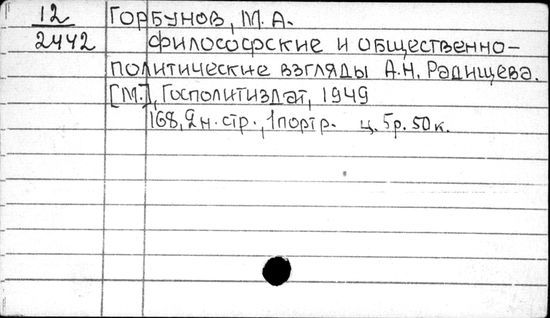 12 Горбунов, М. А.
2442 Философские и общественно-
политические взгляды А.Н. Радищева.
[М.], Госполитиздат, 1949
168, 2 н. стр., 1 портр. ц. 5р. 50к.